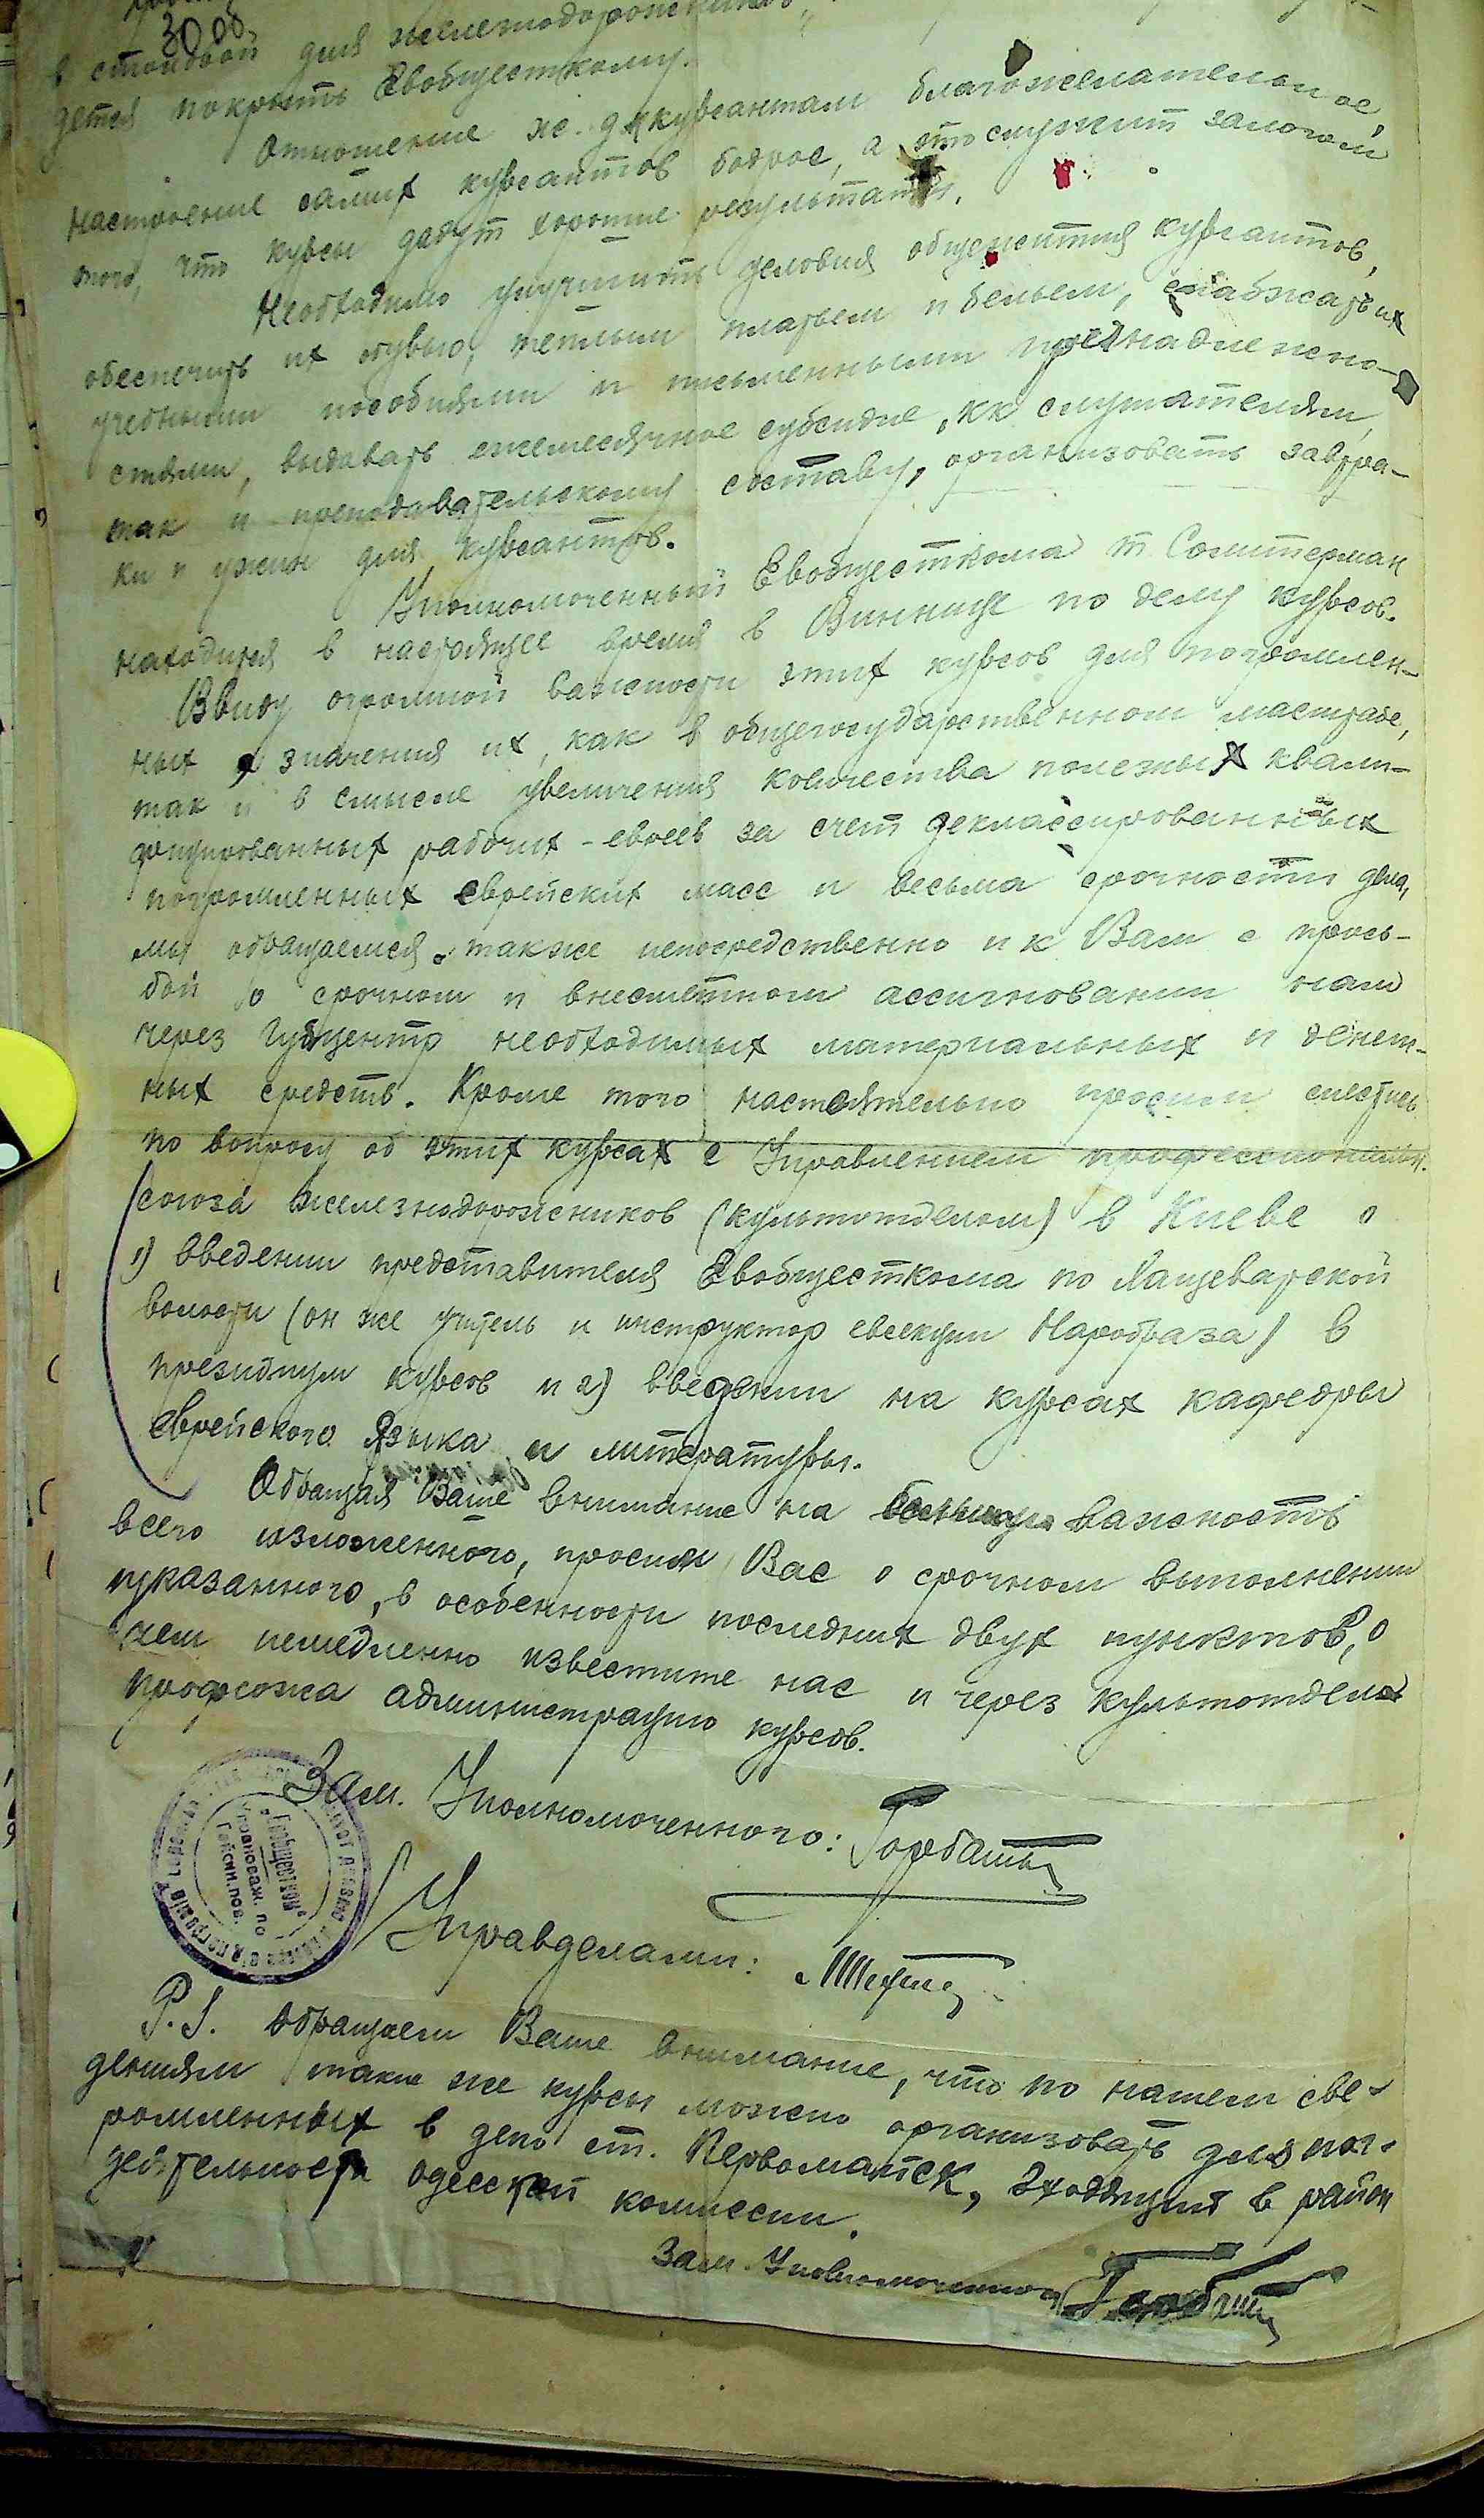 3000
в столовой для железнодорожников,
дется покрыть Евобщесткому.
Отношение ж.д. к курсантам благожелательное,
настроение самих курсантов бодрое, а это служит залогом
того, что курсы дадут хорошие результаты.
Необходимо улучшить условия общежития курсантов,
обеспечить их обувью, теплым платьем и бельем, снабжать их
учебными пособиями и письменными принадлежно-
стями, выдавать ежемесячное субсидие, кк слушателям,
так и преподавательскому составу, организовать завтра-
ки и ужин для курсантов.
Уполномоченный Евобщесткома т.
находится в настоящее время в Виннице по делу курсов.
Ввиду огромной важности этих курсов для погромлен-
ных и значения их, как в общегосударственном масштабе,
так и в смысле увеличения количества полезных квали-
фицированных рабочих - евреев за счет деклассированных
погромленных еврейских масс и весьма срочности дела,
мы обращаемся также непосредственно и к Вам с прось-
бой о срочном и внесметном ассигновании нам
через Губцентр необходимых материальных и денеж-
ных средств. Кроме того настоятельно просим снестись
по вопросу об этих курсах с Управлением профессиональн.
союза железнодорожников (культотделом) в Киеве о
1) введении представителя Евобщесткома по Хащеватской
волости (он же учитель и инструктор евсекции Наробраза) в
президиум курсов и 2) введении на курсах кафедры
еврейского языка и литературы.
Обращая Ваше внимание на важность
всего изложенного, просим Вас о срочном выполнении
указанного, в особенности последних двух пунктов, о
чем немедленно известите нас и через культотдел
профсожа администрацию курсов.
Зам. Уполномоченного: Горбаты
"Евобщестком"
Уповноваж. по
Гайсин. пов.
Управделами:
P.S. Обращаем Ваше внимание, что по нашем све-
дениям такие же курсы можно организовать для пог-
ромленных в депо ст. Первомайск, входящий в район
деятельности одесской комиссии.
Зам. Уполномоченного Горбаты